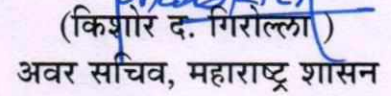 (किशोर द. गिरोल्ला )
अवर सचिव, महाराष्ट्र शासन